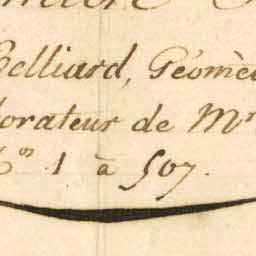 Belliard, Géomè
orateur de Mr
1 à 507.